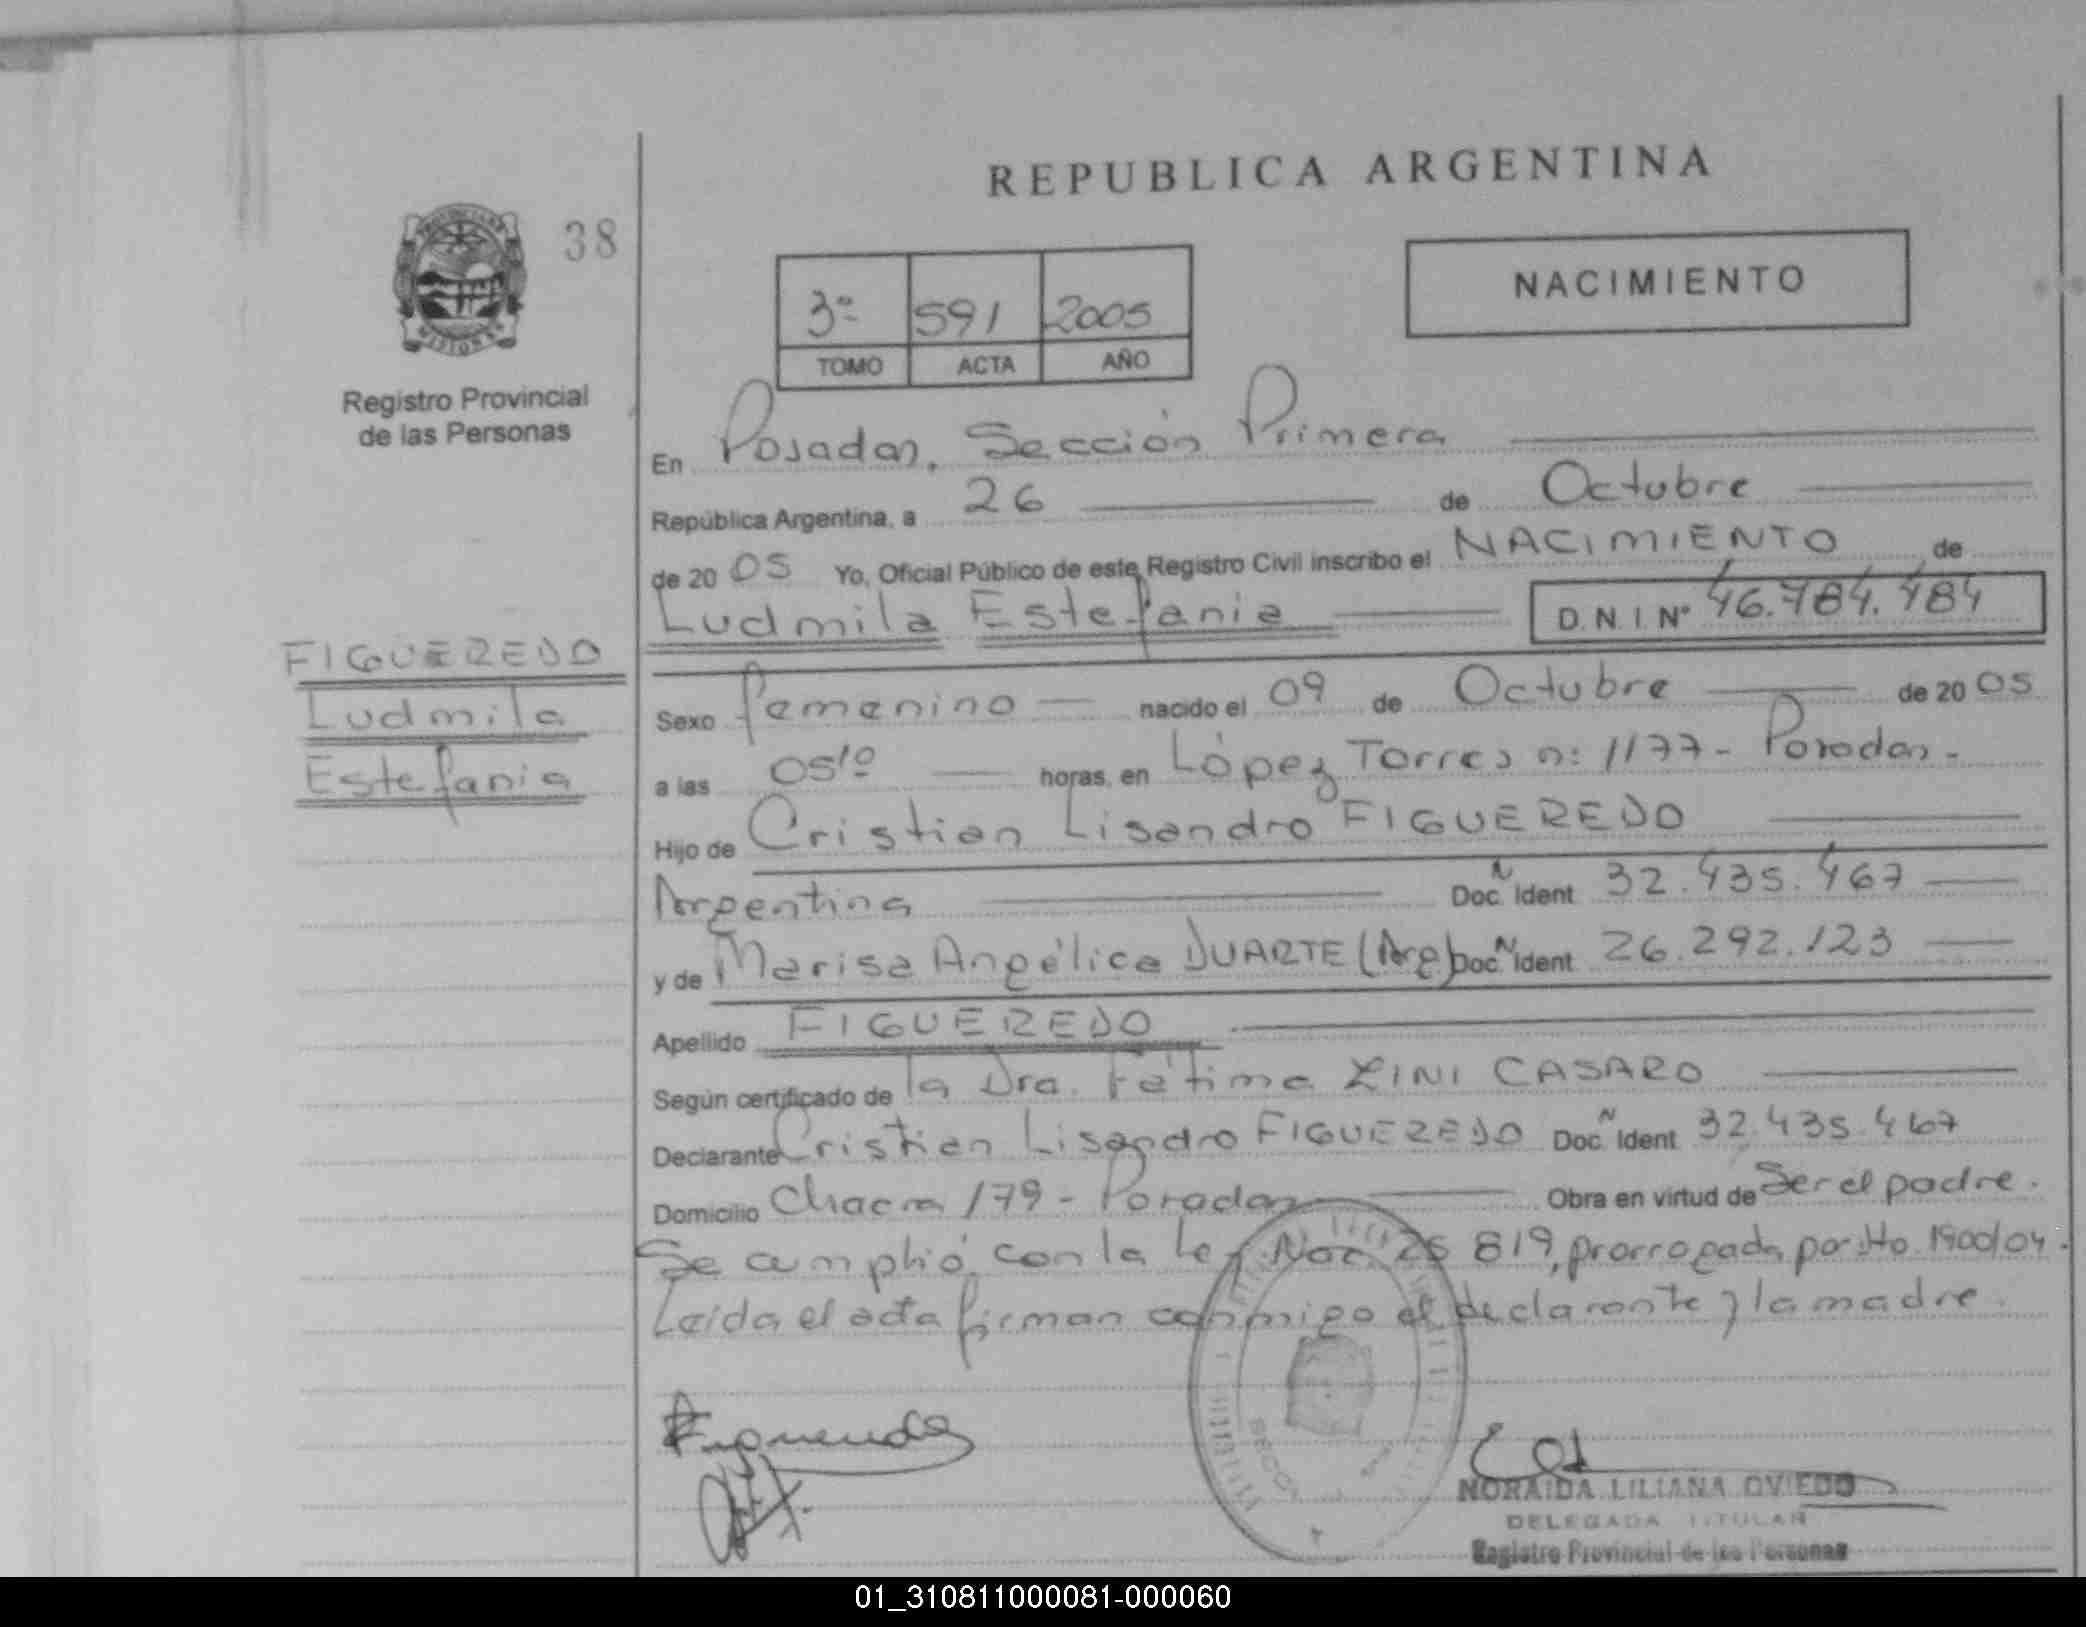 REPUBLICA ARGENTINA
38
NACIMIENTO
3º 591 2005
TOMO ACTA AÑO
Registro Provincial
de las Personas
En Posadas, Sección Primera
República Argentina, a 26 de Octubre
de 20 05 Yo, Oficial Público de este Registro Civil inscribo el NACIMIENTO de
Ludmila Estefania D.N.I. Nº 46.784.484
FIGUEREDO
Ludmila
Estefania
Sexo femenino nacido el 09 de Octubre de 20 05
a las 05¹⁰ horas, en López Torres n: 1177 - Posadas.
Hijo de Cristian Lisandro FIGUEREDO
Argentina Doc. N Ident 32.435.467
y de Marisa Angélica DUARTE (Arg) Doc. N Ident 26.292.123
Apellido FIGUEREDO
Según certificado de la Dra. Fátima ZINI CASARO
Declarante Cristian Lisandro FIGUEREDO Doc. N Ident 32.435.467
Domicilio Chacra 179 - Posadas Obra en virtud de Ser el padre.
Se cumplió con la Ley Nac. 25 819, prorrogada por Dto. 1900/04.
Leida el acta firman conmigo el declarante y la madre.
Figueredo
SECCION
NORAIDA LILIANA OVIEDO
DELEGADA TITULAR
Registro Provincial de las Personas
01_310811000081-000060